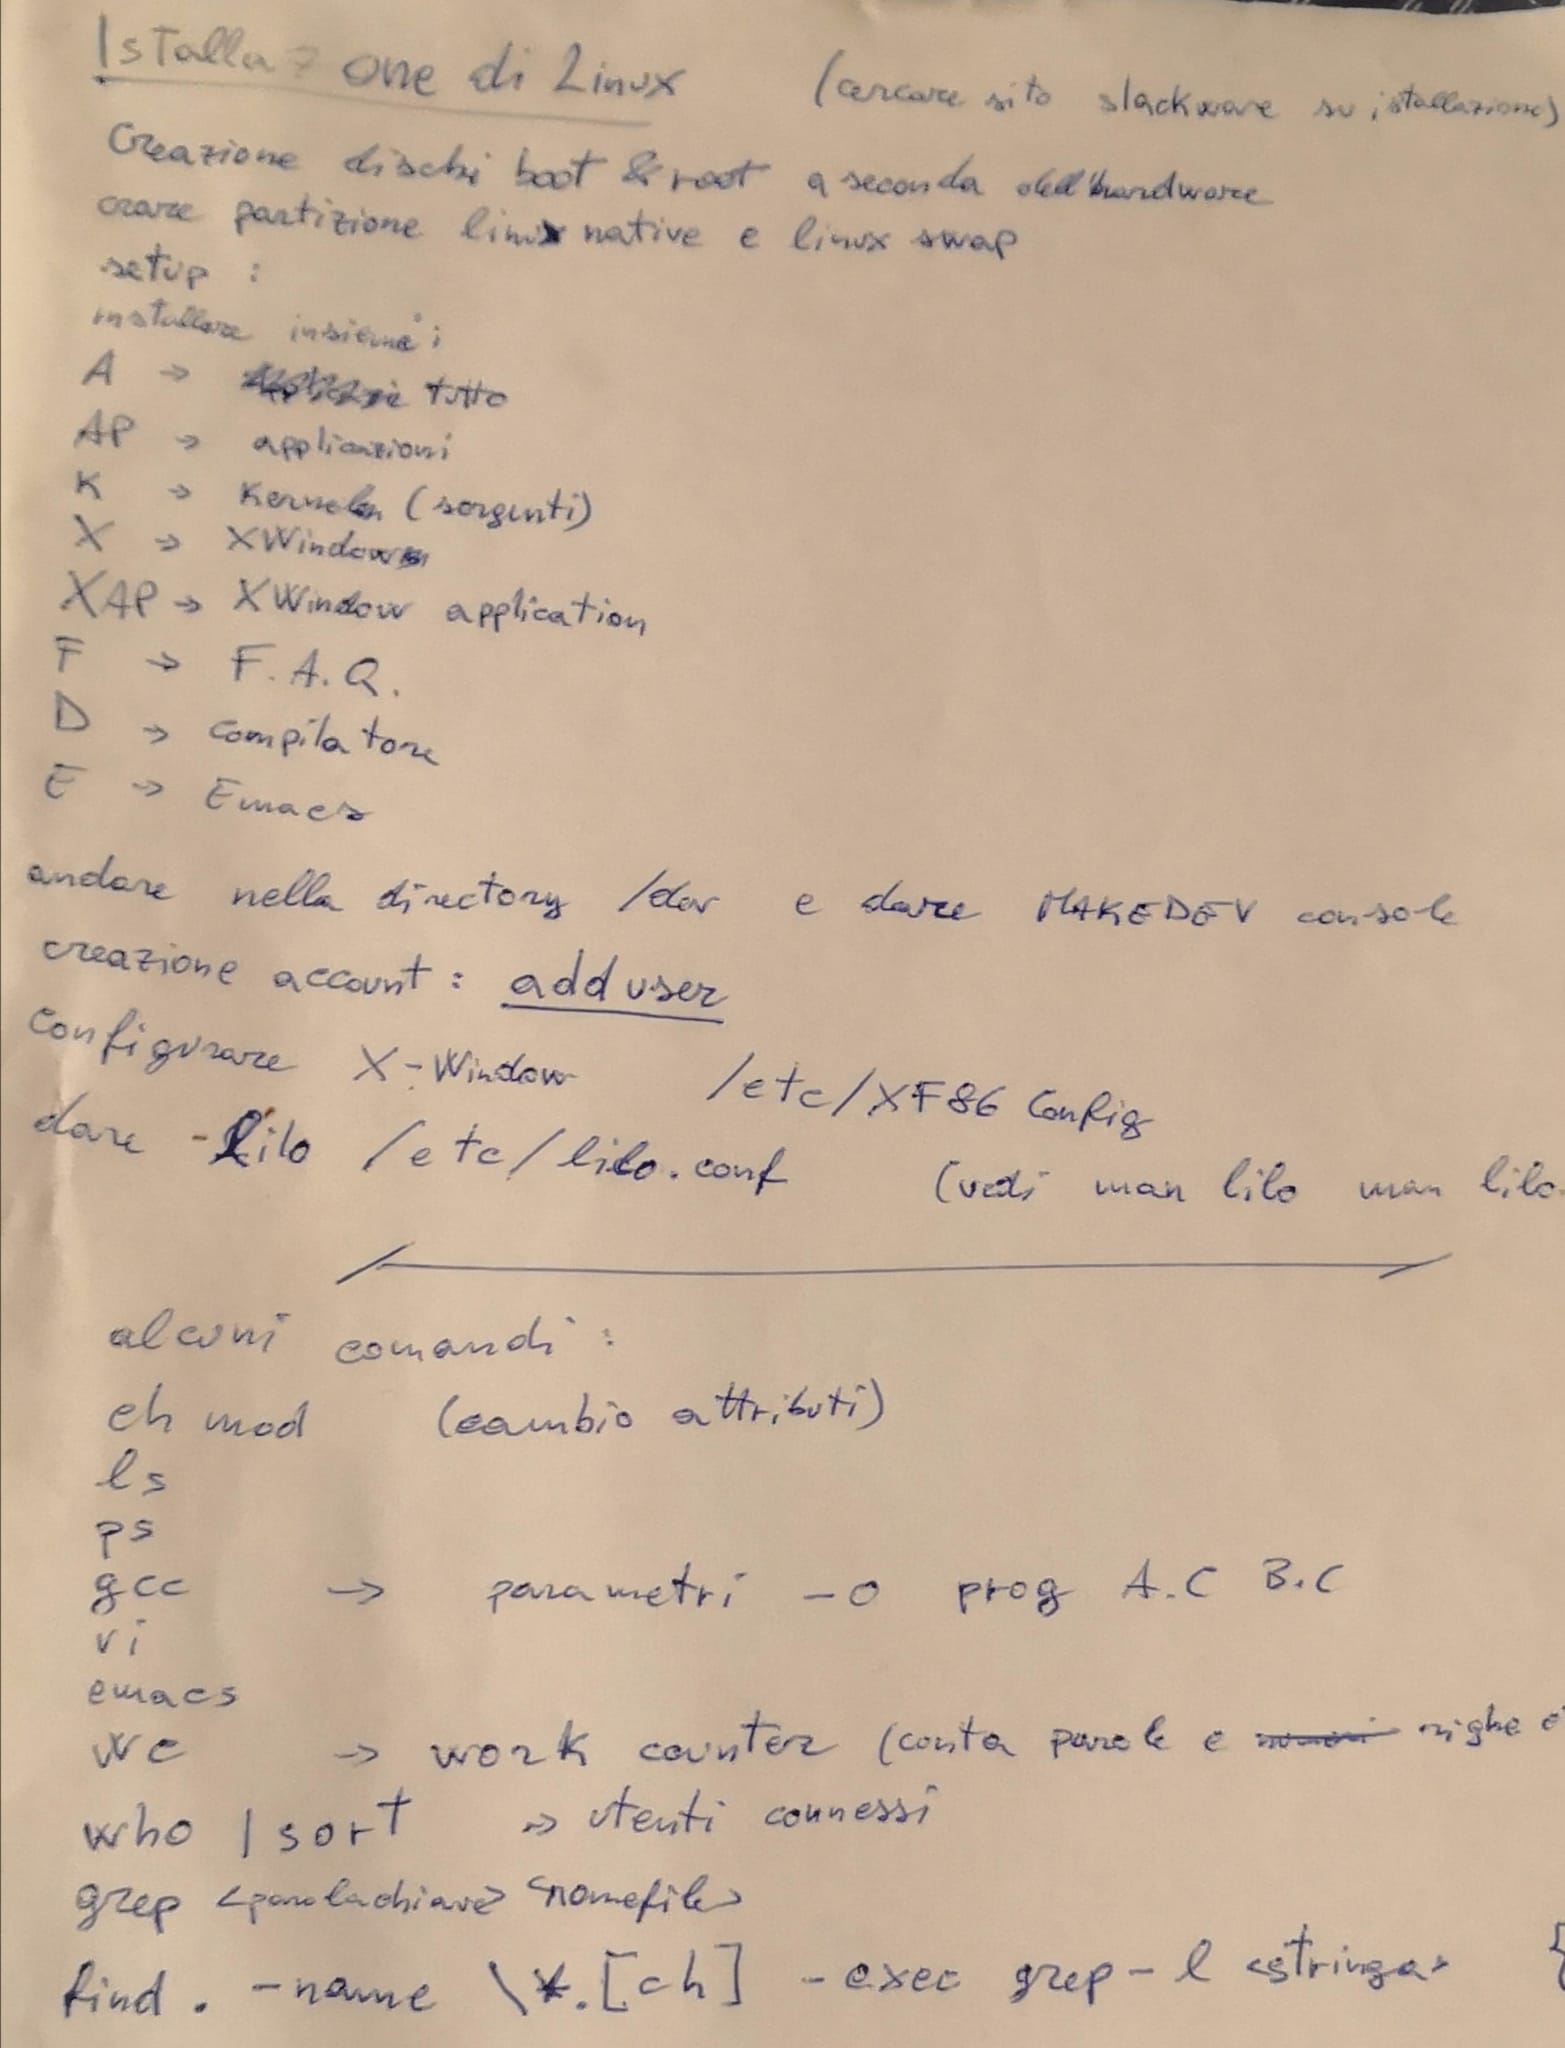 Istallazione di Linux (cercare sito slackware su istallazione)
Creazione dischi boot & root a seconda dell'hardware
creare partizione linux native e linux swap
setup :
installare insieme :
A → tutto
AP → applicazioni
K → Kernel (sorgenti)
X → XWindow
XAP → XWindow application
F → F.A.Q.
D → compilatore
E → Emacs
andare nella directory /dev e dare MAKEDEV console
creazione account : adduser
Configurare X-Window /etc/XF86Config
dare - lilo /etc/lilo.conf (vedi man lilo man lilo.
alcuni comandi :
chmod (cambio attributi)
ls
ps
gcc → parametri -o prog A.C B.C
vi
emacs
wc → work counter (conta parole e righe
who | sort → utenti connessi
grep <parolachiave> <nomefile>
find . -name \*.[ch] -exec grep -l <stringa> {